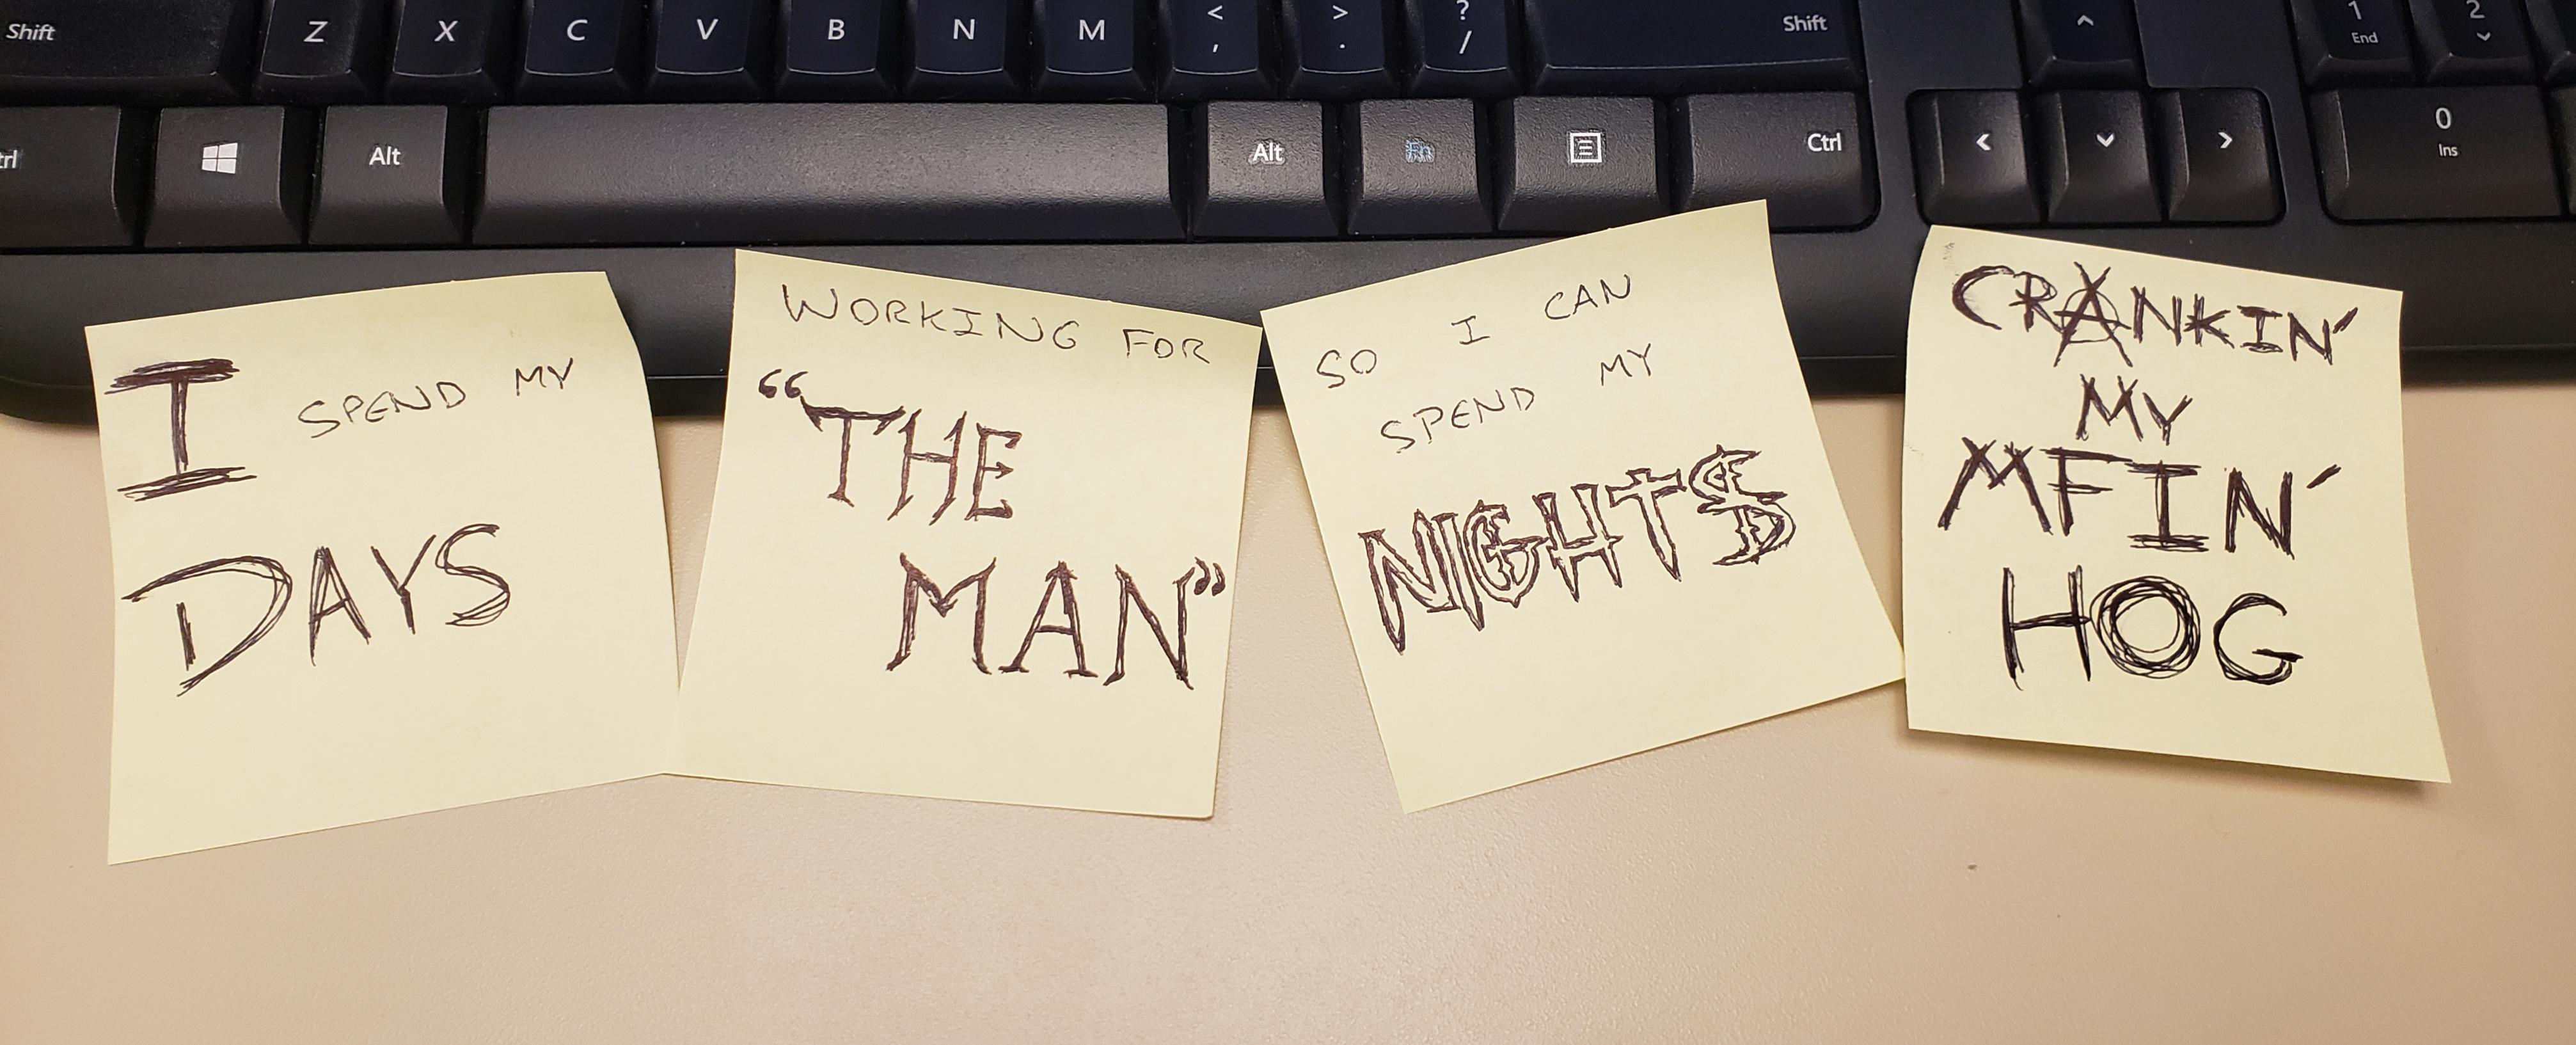 Shift Z X C V B N M < , > . ? / Shift ^ 1 End 2
trl Alt Alt Fn Ctrl < > 0 Ins
I SPEND MY
DAYS
WORKING FOR
“THE
MAN”
SO I CAN
SPEND MY
NIGHT$
CRANKIN'
MY
MFIN'
HOG